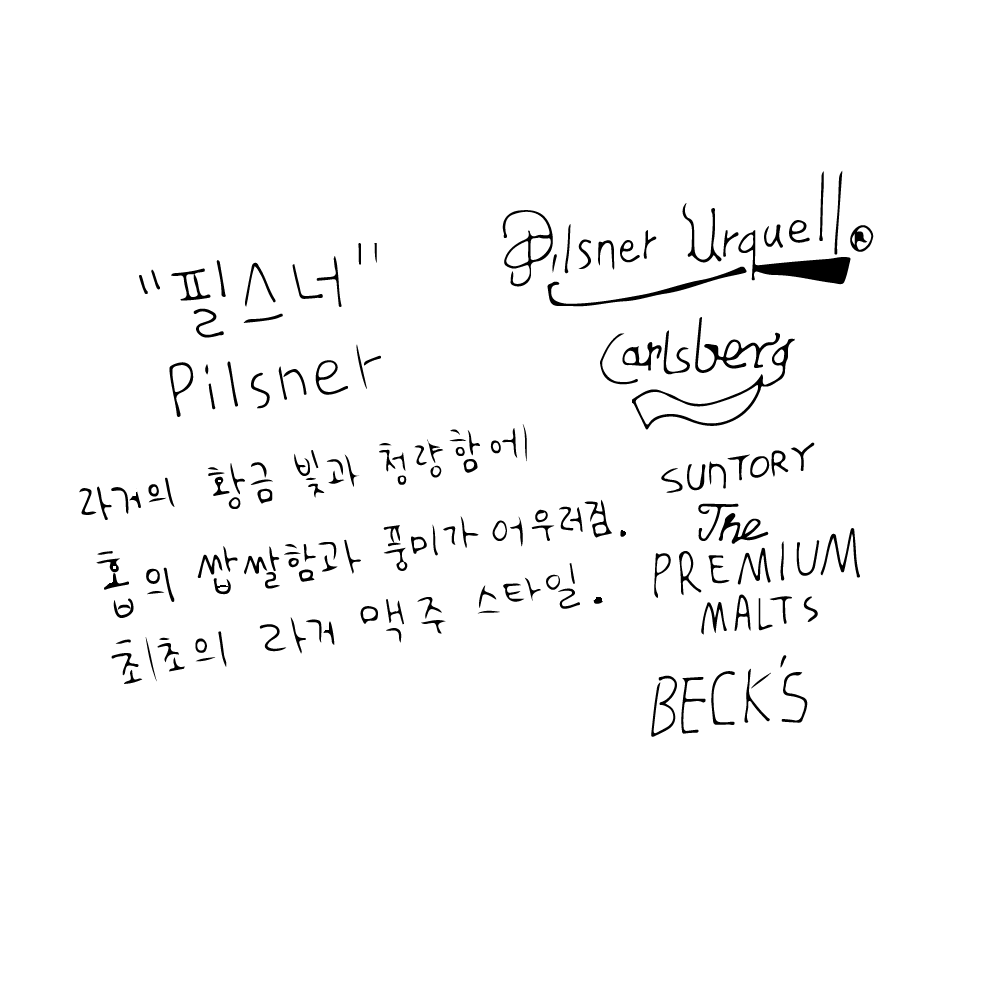 "필스너"
Pilsner
라거의 황금 빛과 청량함에
홉의 쌉쌀함과 풍미가 어우러짐.
최초의 라거 맥주 스타일.
Pilsner Urquell®
Carlsberg
SUnTORY
The
PREMIUM
MALTS
BECK'S